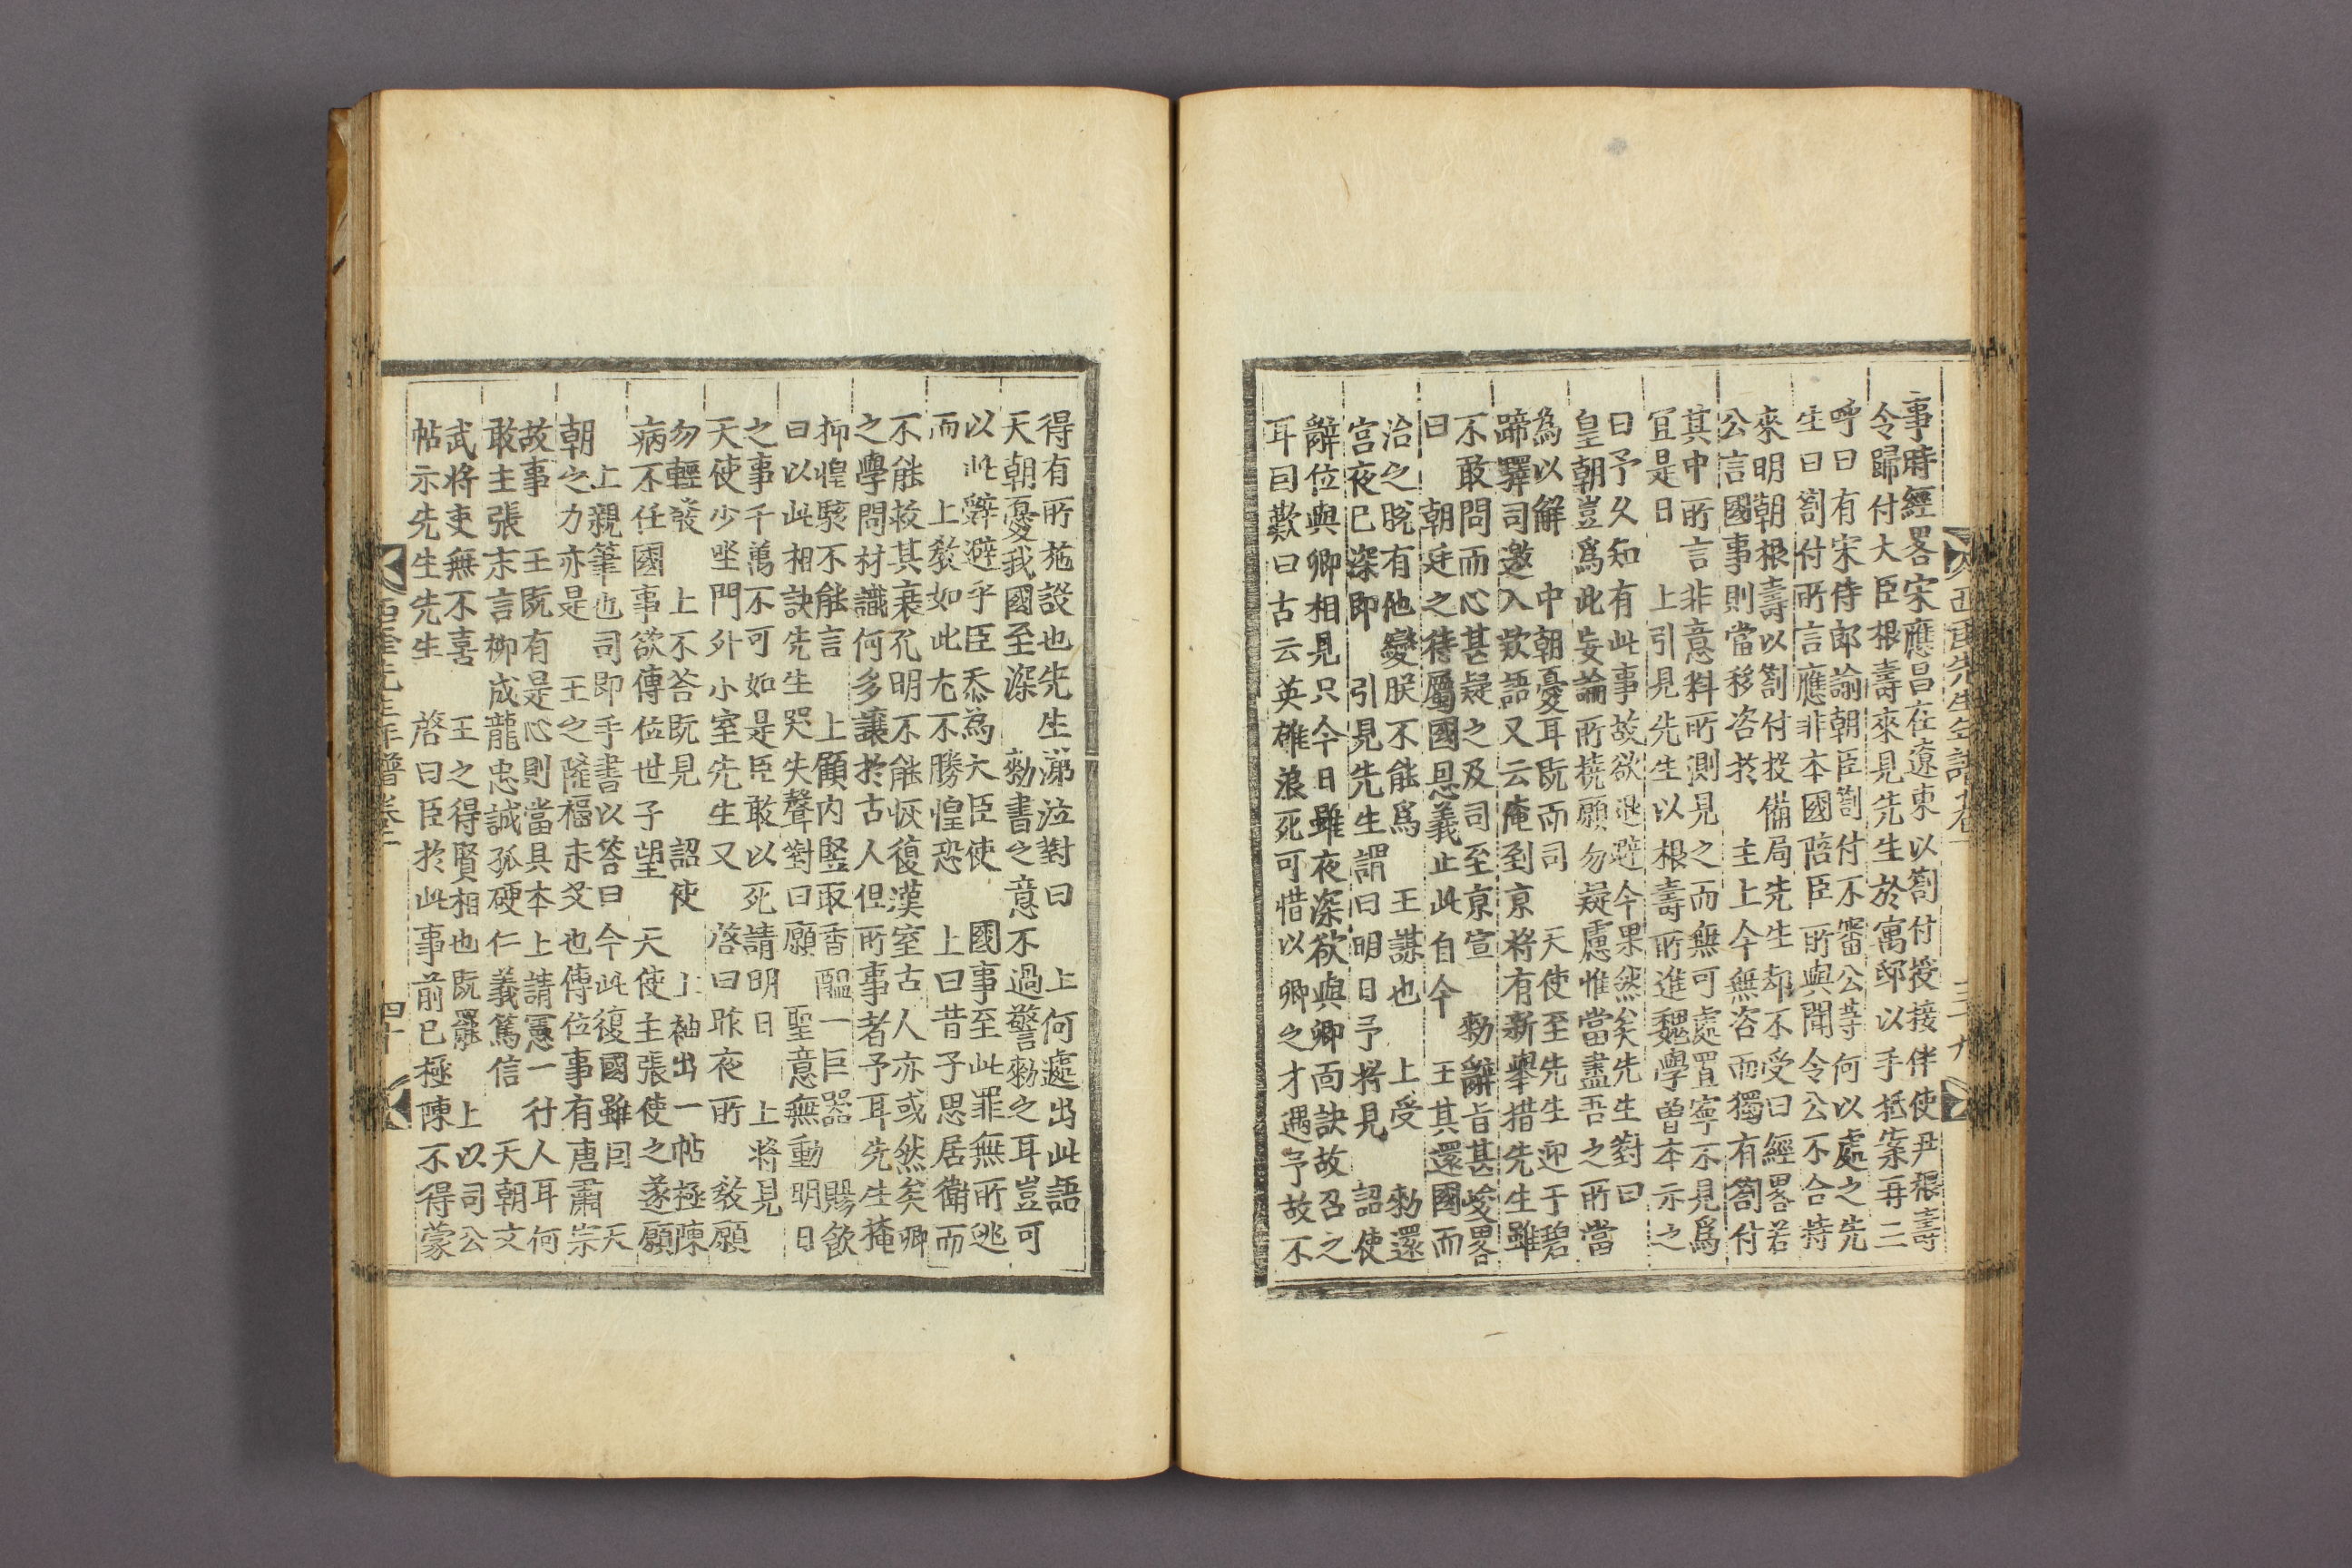 事時經畧宋應昌在遼東以劄付授接伴使尹根壽
令歸付大臣根壽來見先生於寓邸以手抵案再三
呼曰有宋侍郎諭朝臣劄付不審公等何以處之先
生曰劄付所言應非本國陪臣所與聞令公不合持
來明朝根壽以劄付投備局先生却不受曰經畧若
公言國事則當移咨於 主上今無咨而獨有劄付
其中所言非意料所測見之而無可處置寧不見爲
冝是日 上引見先生以根壽所進魏學曾本示之
曰予久知有此事故欲退避今果然矣先生對曰
皇朝豈爲此妄論所撓願勿疑慮惟當盡吾之所當
為以解 中朝憂耳旣而司 天使至先生迎于碧
蹄驛司邀入欵語又云俺到京將有新擧措先生雖
不敢問而心甚疑之及司至京宣 勑辭旨甚峻畧
曰 朝廷之待屬國恩義止此自今 王其還國而
治之脫有他變朕不能爲 王謀也 上受 勑還
宮夜已深即 引見先生謂曰明日予將見 詔使
辭位與卿相見只今日雖夜深欲與卿面訣故召之
耳因歎曰古云英雄浪死可惜以卿之才遇予故不
得有所施設也先生涕泣對曰 上何處出此語
天朝憂我國至深 勑書之意不過警勑之耳豈可
以此辭避乎臣忝為大臣使 國事至此罪無所逃
而 上敎如此尤不勝惶恐 上曰昔子思居衛而
不能救其衰孔明不能恢復漢室古人亦或然矣卿
之學問材識何多讓於古人但所事者予耳先生掩
抑惶駭不能言 上顧內竪取香醞一巨器 賜飮
曰以此相訣先生哭失聲對曰願 聖意無動明日
之事千萬不可如是臣敢以死請明日 上將見
天使少坐門外小室先生又 啓曰昨夜所 敎願
勿輕發 上不答旣見 詔使 上袖出一帖極陳
病不任國事欲傳位世子望 天使主張使之遂願
上親筆也司即手書以答曰今此復國雖曰 天
朝之力亦是 王之隆福未艾也傳位事有唐肅宗
故事 王旣有是心則當具本上請憲一行人耳何
敢主張末言柳成龍忠誠孤硬仁義篤信 天朝文
武將吏無不喜 王之得賢相也旣罷 上以司公
帖示先生先生 啓曰臣於此事前已極陳不得蒙
西厓先生年譜卷二
四十